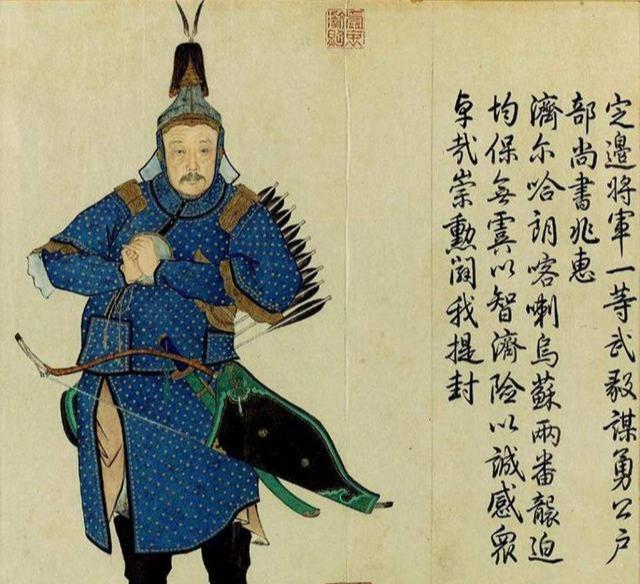 定邊將軍一等武毅謀勇公戶
部尚書兆惠
濟尔哈朗喀喇烏蘇兩番迫
均保無虞以智濟險以誠感眾
卓哉崇勳我提封